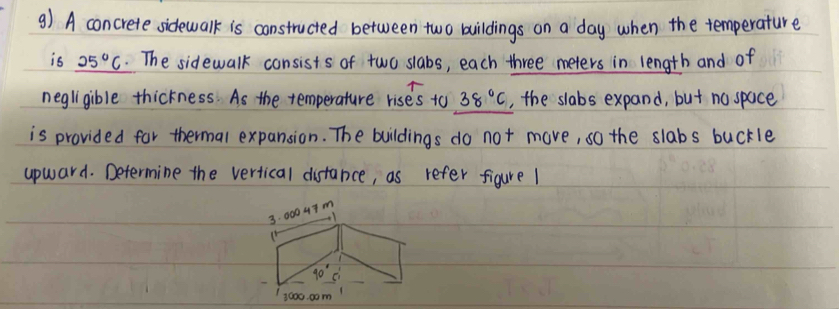 9) A concrete sidewalk is constructed between two buildings on a day when the temperature
is 25°C. The sidewalk consists of two slabs, each three meters in length and of
negligible thickness. As the temperature rises to 38°C, the slabs expand, but no space
is provided for thermal expansion. The buildings do not move, so the slabs buckle
upward. Determine the vertical distance, as refer figure 1
3.00047 m
90°
3000.00m